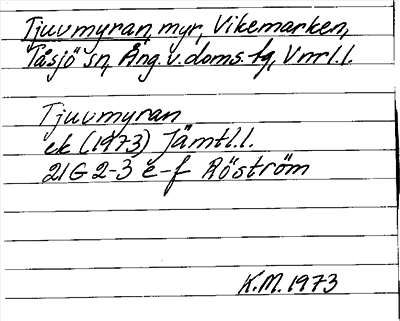 Tjuvmyran, myr, Vikemarken,
Tåsjö sn, Ång. v. doms. tg, Vnrl. l.
Tjuvmyran
ek (1973) Jämtl. l.
21G 2-3 e-f Röström
K.M. 1973